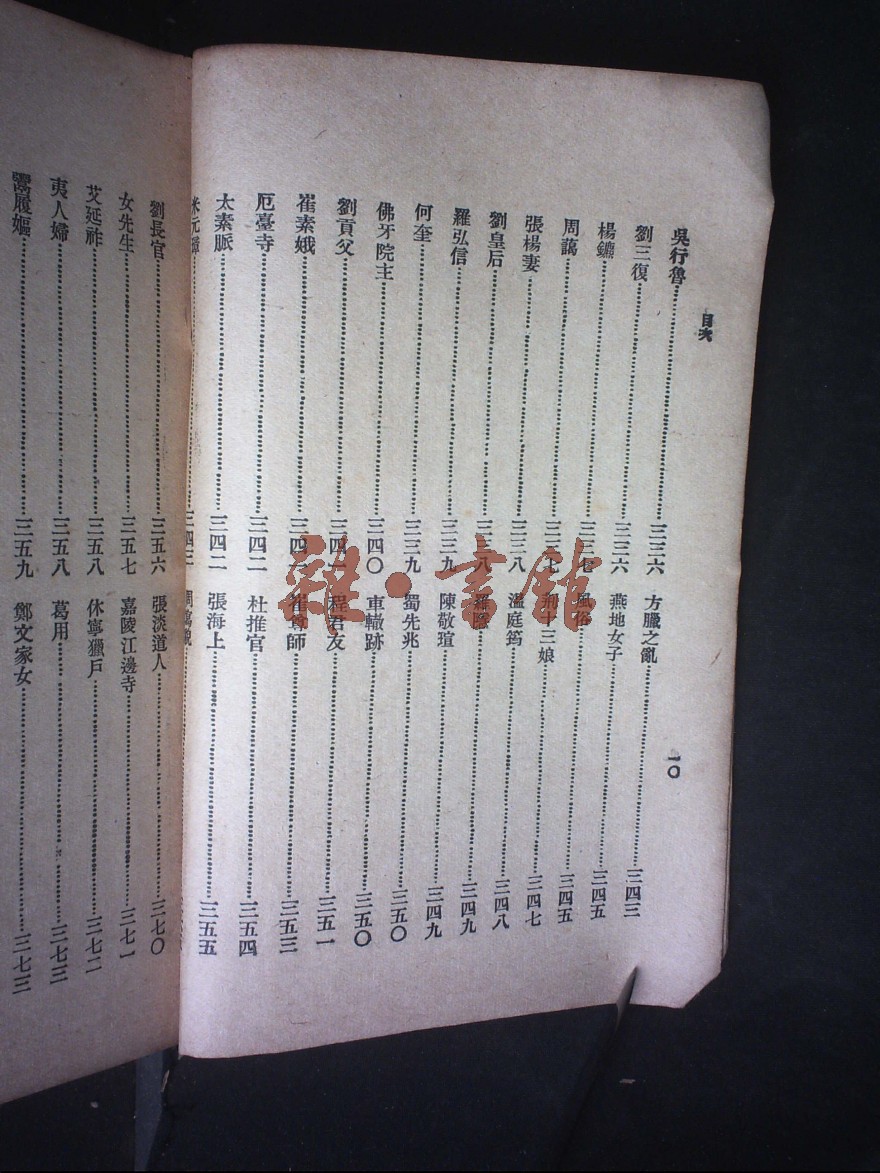 目次
一〇
吳行魯……三三六
劉三復……三三六
楊鑣……三三七
周藹……三三七
張楊妻……三三八
劉皇后……三三八
羅弘信……三三九
何奎……三三九
佛牙院主……三四〇
劉貢父……三四一
崔素娥……三四一
厄臺寺……三四二
太素脈……三四二
米元……三四三
方臘之亂……三四三
燕地女子……三四五
風俗……三四五
荊十三娘……三四七
溫庭筠……三四八
羅隱……三四九
陳敬瑄……三四九
蜀先兆……三五〇
車轍跡……三五〇
程君友……三五一
崔尊師……三五三
杜推官……三五四
張海上……三五五
劉長官……三五六
女先生……三五七
艾延祚……三五八
夷人婦……三五八
鬻履嫗……三五九
張淡道人……三七〇
嘉陵江邊寺……三七一
休寧獵戶……三七二
葛用……三七三
鄭文家女……三七三
雜·書館